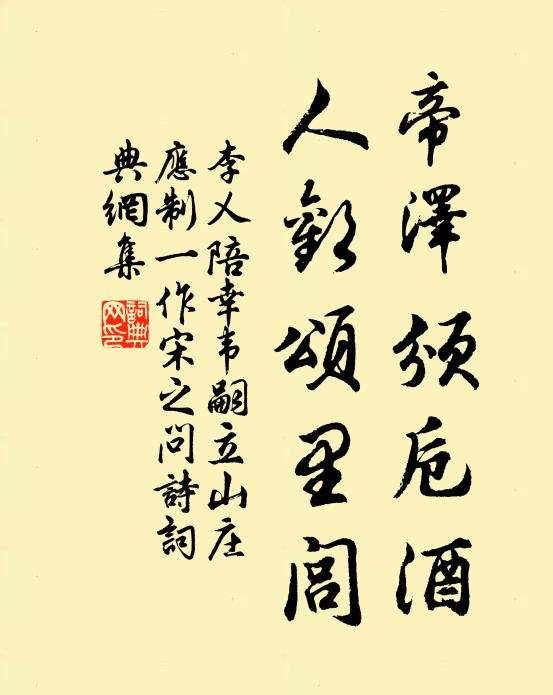 帝澤頒卮酒
人歡頌里閭
李乂陪幸韋嗣立山庄
應制一作宋之問詩詞
典網集
詞典
网印